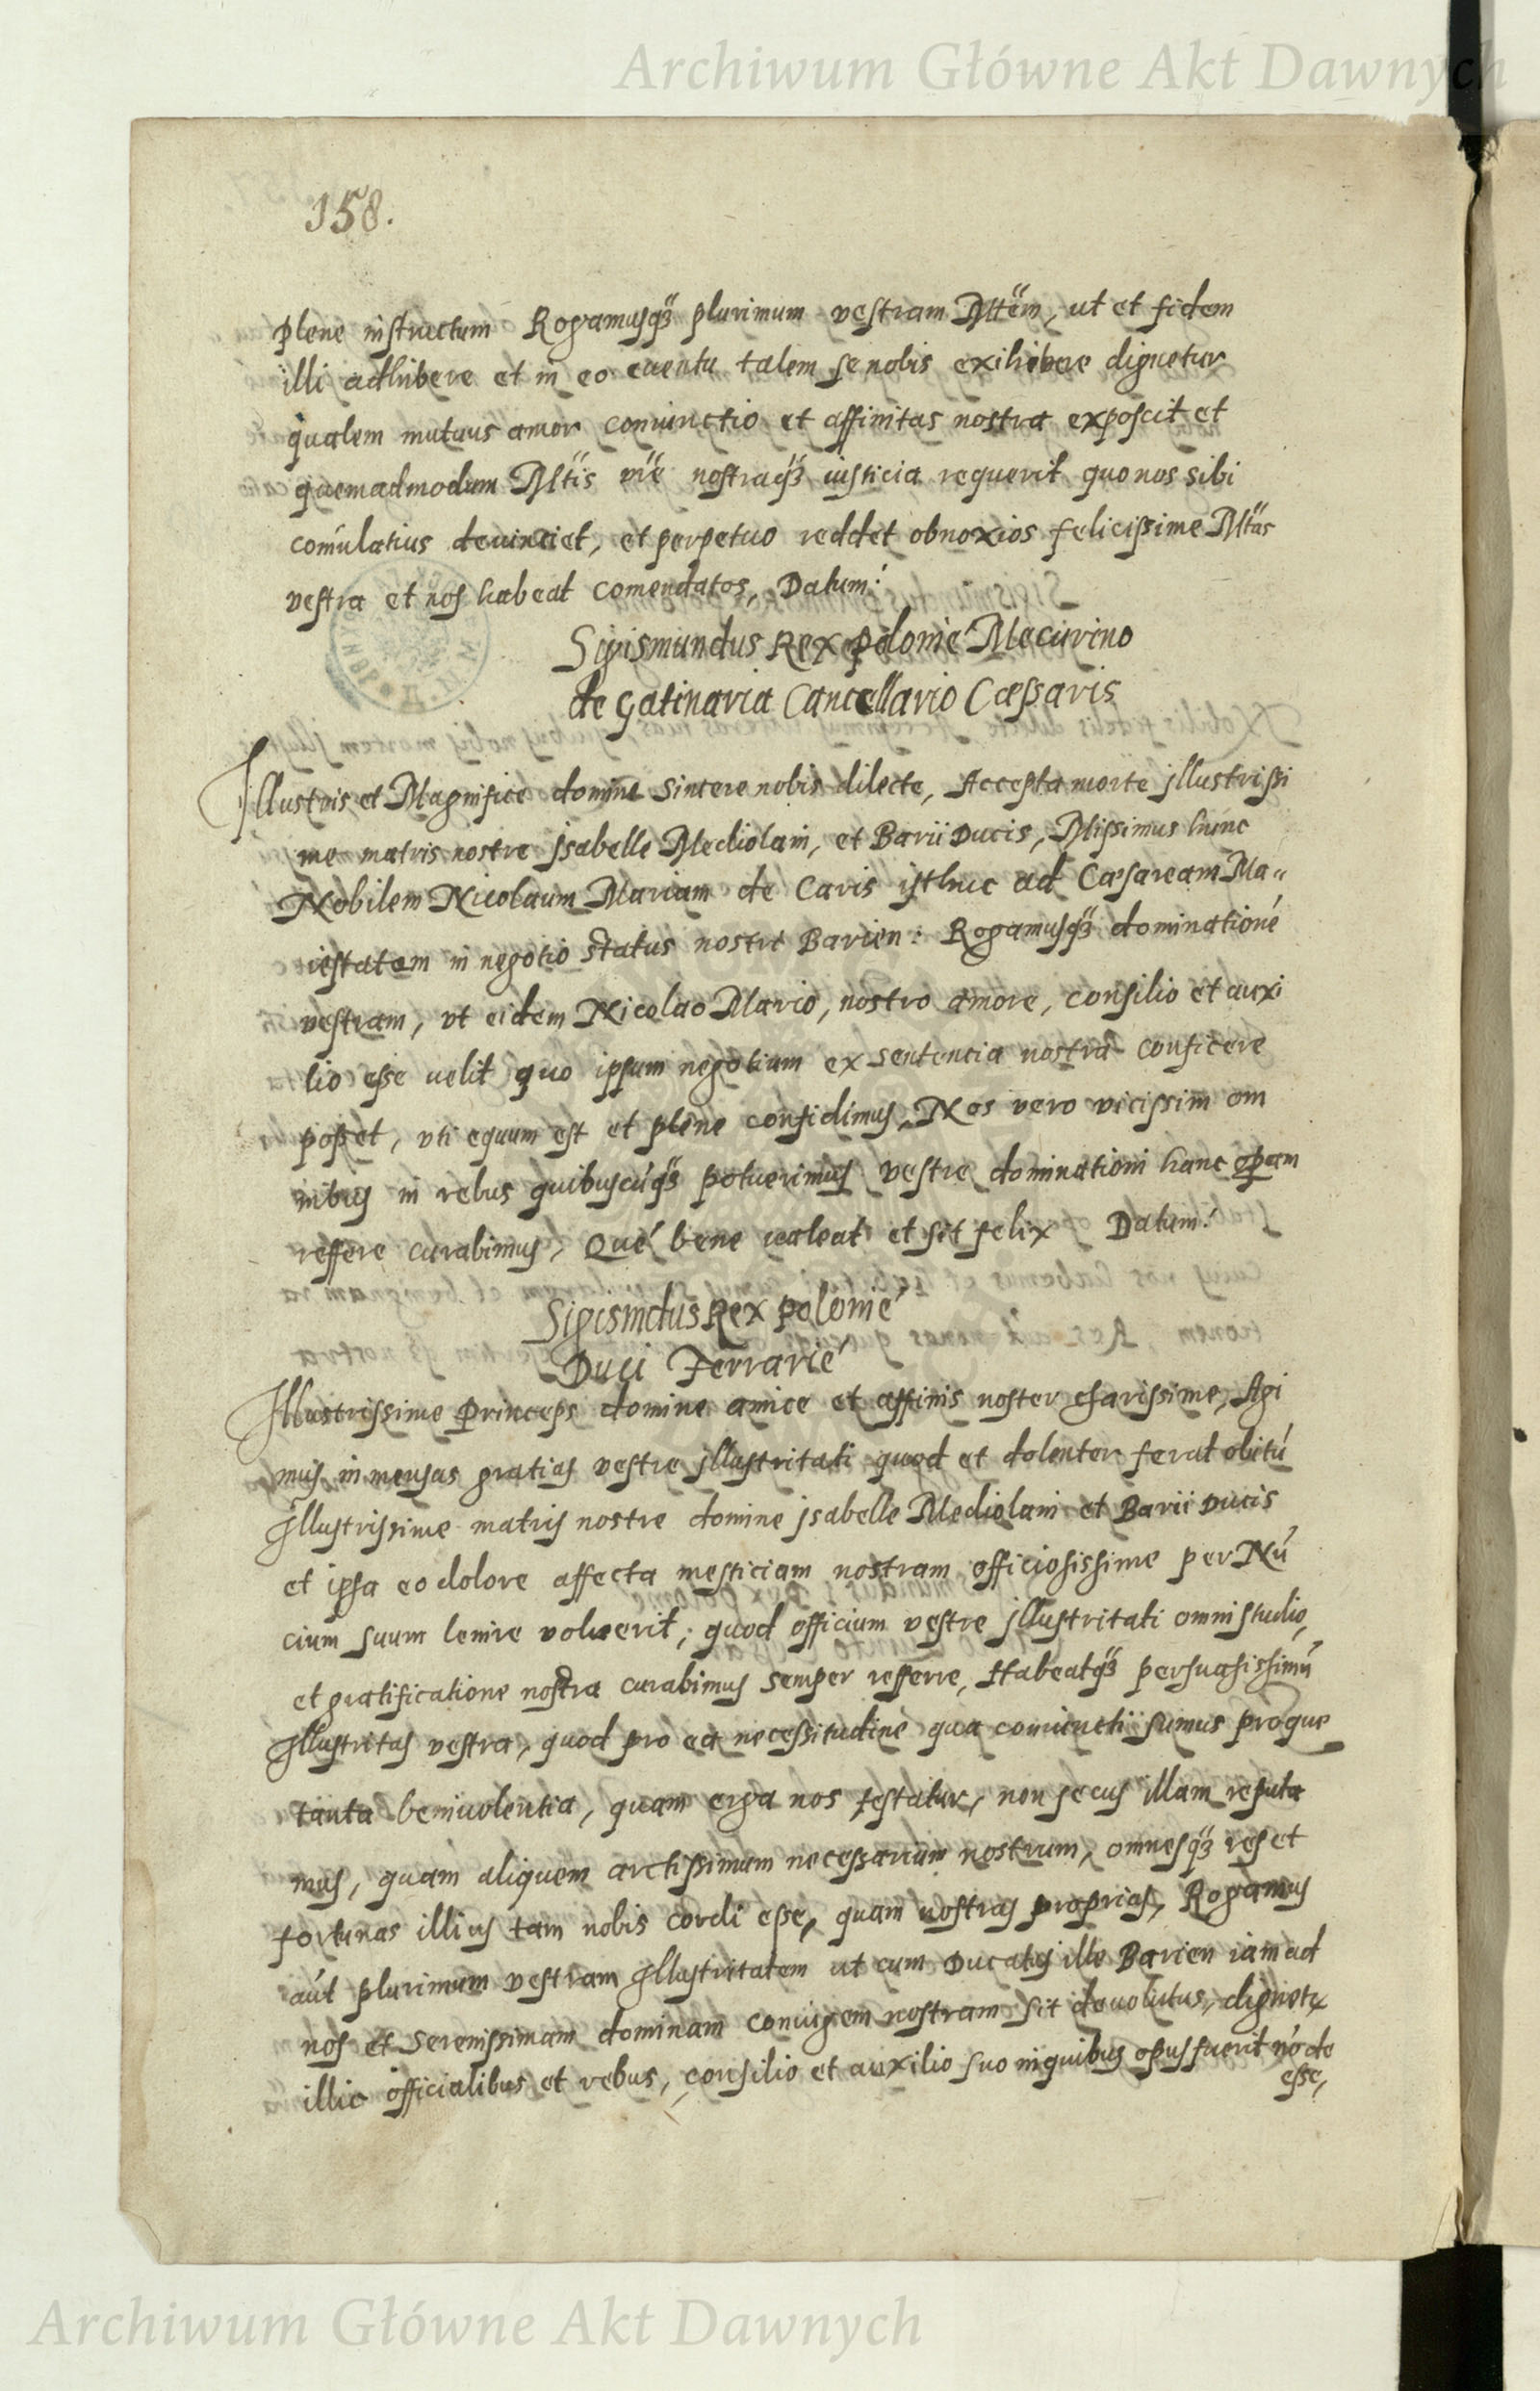 Archiwum Główne Akt Dawnych
158.
plene instructum Rogamusq3 plurimum vestram Mtem, ut et fidem
illi adhibere et in eo euentu talem se nobis exihibere dignetur
qualem mutuus amor coniunctio et affinitas nostra exposcit et
quemadmodum Mtis vre nostraq3 iusticia requerit quo nos sibi
comulatius deuinciet, et perpetuo reddet obnoxios felicissime Mtas
vestra et nos habeat comendatos, Datum:
Sigismundus Rex polonie Mecurino
de gatinaria Cancellario Cæssaris
Illustris et Magnifice domine sincere nobis dilecte, Accepta morte jllustrissi
me matris nostre jsabelle Mediolani, et Barii Ducis, Missimus hunc
Nobilem Nicolaum Mariam de Caris isthuc ad Cæsaream Ma-
iestatem in negotio status nostri Barien: Rogamusq3 dominatione
vestram, vt eidem Nicolao Mario, nostro amore, consilio et auxi
lio esse uelit quo ipsum negotium ex sententia nostra conficere
posset, vti equum est et plene confidimus, Nos vero vicissim om
nibus in rebus quibuscuq3 potuerimus vestre dominationi hanc opam
reffere curabimus, Que bene ualeat et sit felix Datum:
Sigismdus Rex polonie
Duci Ferrarie
Illustrissime Princeps domine amice et affinis noster charissime, Agi
mus inmensas gratias vestre jllustritati quod et dolenter ferat obitu
Illustrissime matris nostre domine jsabelle Mediolani et Barii Ducis
et ipsa eo dolore affecta mesticiam nostram officiosissime per Nu
cium suum lenire voluerit, quod officium vestre jllustritati omni studio,
et gratificatione nostra curabimus semper refferre, Habeatq3 persuasissimu
Illustritas vestra, quod pro ea necessitudine qua coniuncti sumus proque
tanta beniuolentia, quam erga nos testatur, non secus illam reputa
mus, quam aliquem arctissimum necessarium nostrum, omnesq3 res et
fortunas illius tam nobis cordi esse, quam nostras proprias, Rogamus
aut plurimum vestram Illustritatem ut cum Ducatus ille Barien iam ad
nos et serenissimam dominam coniugem nostram sit deuolutus, dignetr
illic officialibus et rebus, consilio et auxilio suo in quibus opus fuerit no de
esse,
Archiwum Główne Akt Dawnych